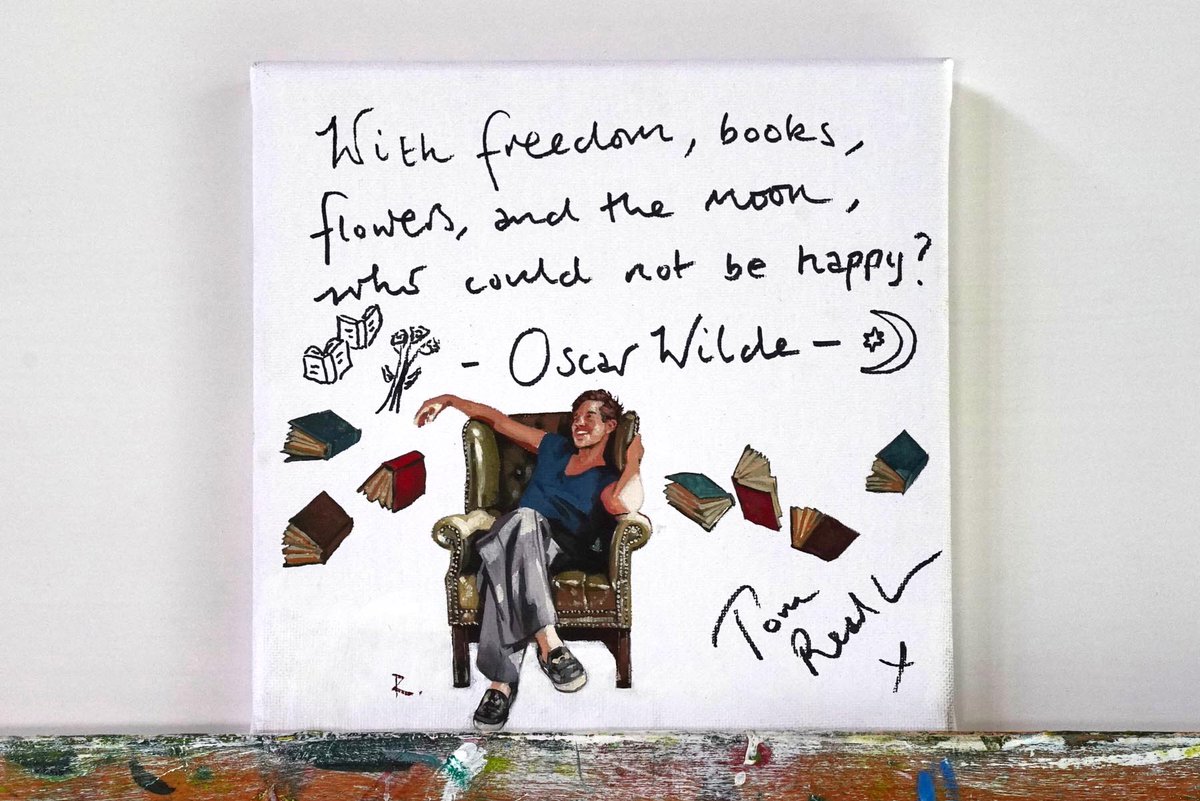 With freedom, books,
flowers, and the moon,
who could not be happy?
- Oscar Wilde -
Tom
R.
x